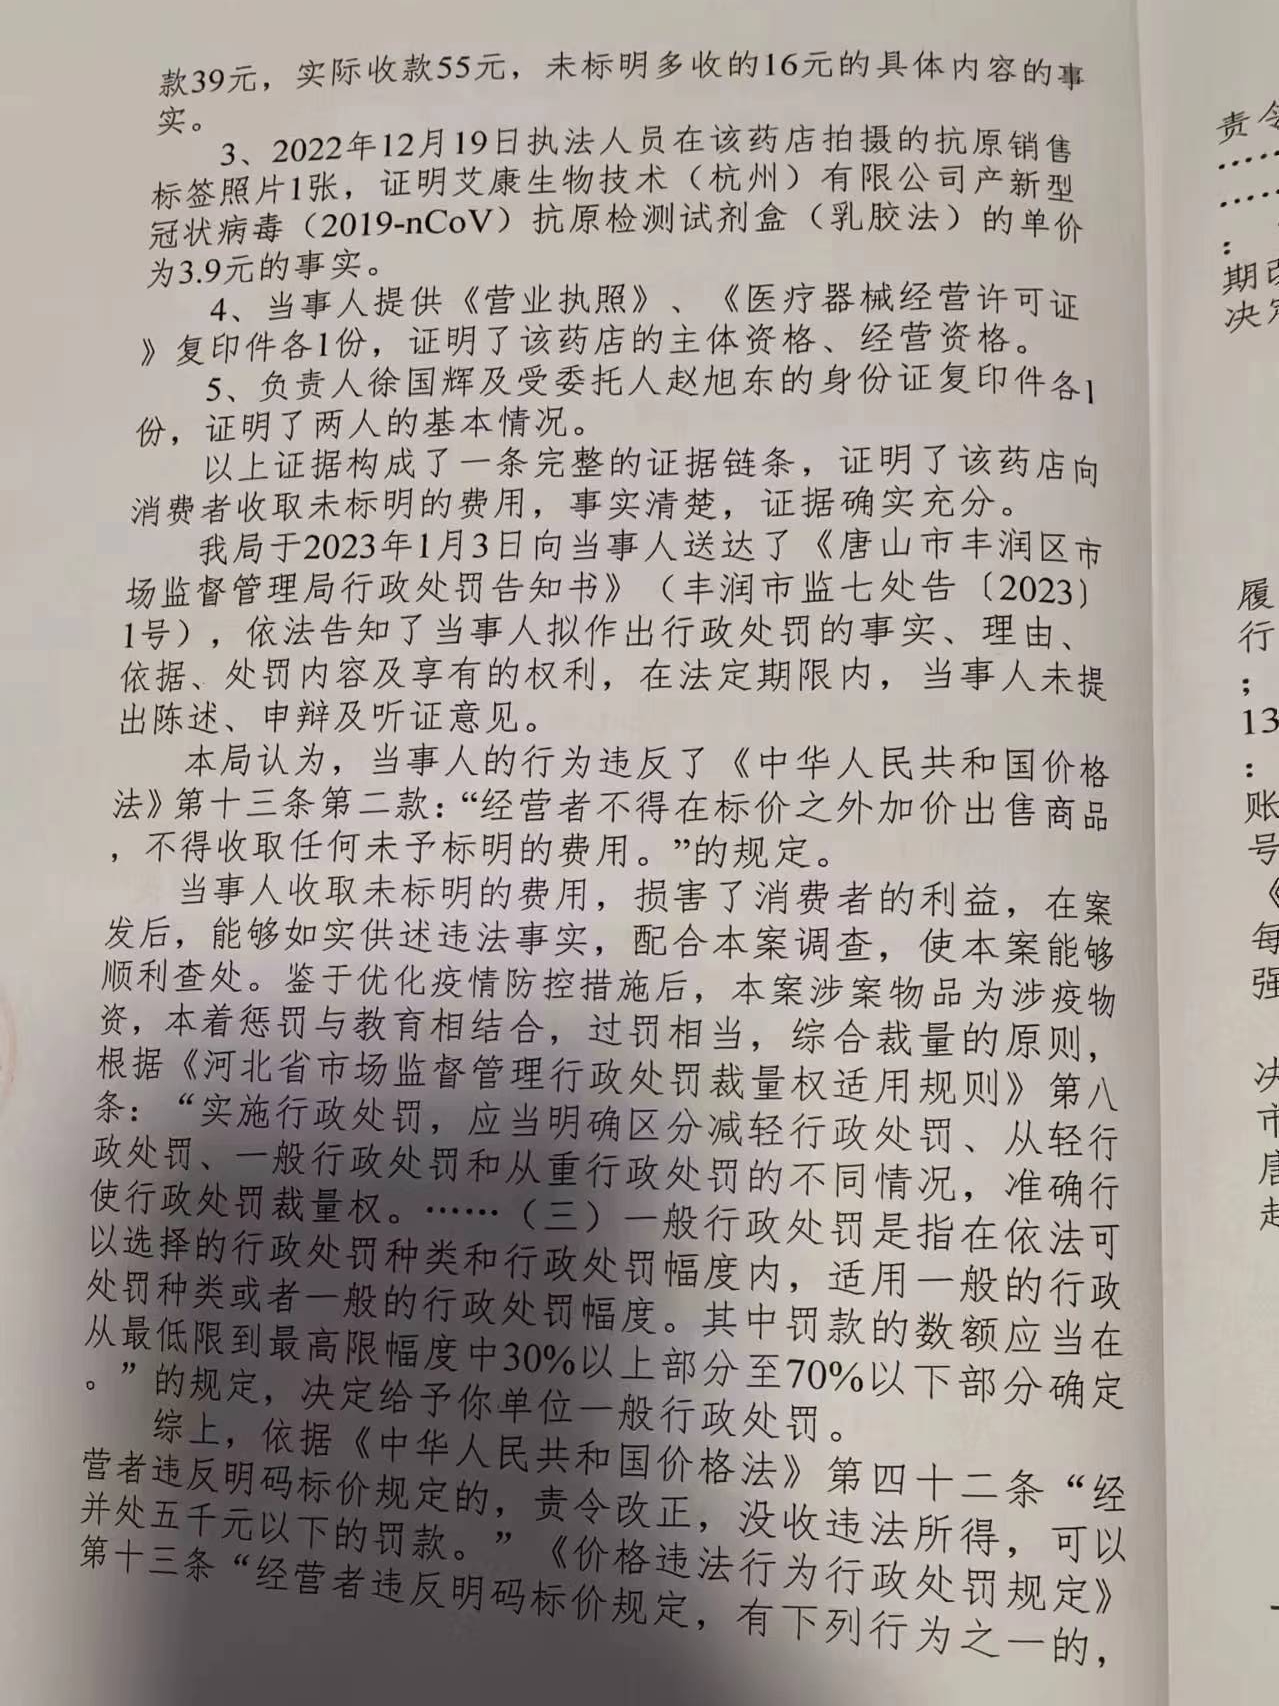 款39元，实际收款55元，未标明多收的16元的具体内容的事
实。
3、2022年12月19日执法人员在该药店拍摄的抗原销售
标签照片1张，证明艾康生物技术（杭州）有限公司产新型
冠状病毒（2019-nCoV）抗原检测试剂盒（乳胶法）的单价
为3.9元的事实。
4、当事人提供《营业执照》、《医疗器械经营许可证
》复印件各1份，证明了该药店的主体资格、经营资格。
5、负责人徐国辉及受委托人赵旭东的身份证复印件各1
份，证明了两人的基本情况。
以上证据构成了一条完整的证据链条，证明了该药店向
消费者收取未标明的费用，事实清楚，证据确实充分。
我局于2023年1月3日向当事人送达了《唐山市丰润区市
场监督管理局行政处罚告知书》（丰润市监七处告〔2023〕
1号），依法告知了当事人拟作出行政处罚的事实、理由、
依据、处罚内容及享有的权利，在法定期限内，当事人未提
出陈述、申辩及听证意见。
本局认为，当事人的行为违反了《中华人民共和国价格
法》第十三条第二款：“经营者不得在标价之外加价出售商品
，不得收取任何未予标明的费用。”的规定。
当事人收取未标明的费用，损害了消费者的利益，在案
发后，能够如实供述违法事实，配合本案调查，使本案能够
顺利查处。鉴于优化疫情防控措施后，本案涉案物品为涉疫物
资，本着惩罚与教育相结合，过罚相当，综合裁量的原则，
根据《河北省市场监督管理行政处罚裁量权适用规则》第八
条：“实施行政处罚，应当明确区分减轻行政处罚、从轻行
政处罚、一般行政处罚和从重行政处罚的不同情况，准确行
使行政处罚裁量权。……（三）一般行政处罚是指在依法可
以选择的行政处罚种类和行政处罚幅度内，适用一般的行政
处罚种类或者一般的行政处罚幅度。其中罚款的数额应当在
从最低限到最高限幅度中30%以上部分至70%以下部分确定
。”的规定，决定给予你单位一般行政处罚。
综上，依据《中华人民共和国价格法》第四十二条“经
营者违反明码标价规定的，责令改正，没收违法所得，可以
并处五千元以下的罚款。”《价格违法行为行政处罚规定》
第十三条“经营者违反明码标价规定，有下列行为之一的，
责令
……
……
：
期改
决定
履
行
；
13
：
账
号
《
每
强
决
市
唐
起